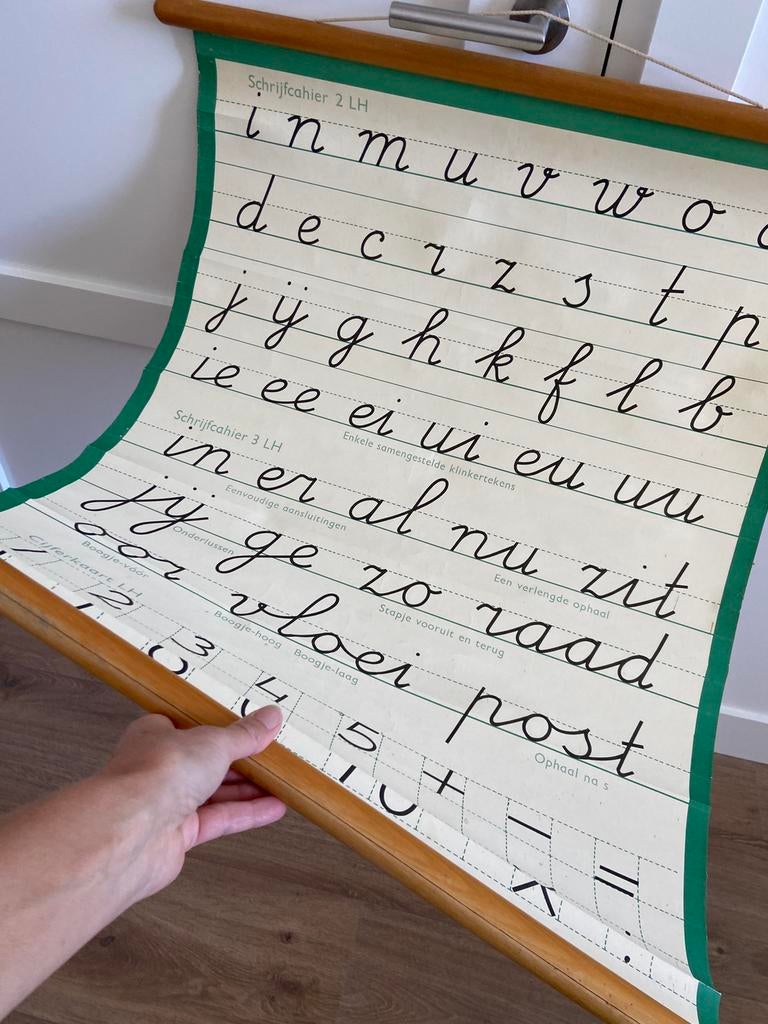 Schrijfcahier 2 LH
i n m u v w o
d e c r z s t p
j ij g h k f l b
ie ee ei ui eu uu
Enkele samengestelde klinkertekens
Schrijfcahier 3 LH
in er al nu zit
Eenvoudige aansluitingen
Een verlengde ophaal
jij ge zo raad
Onderlussen
Stapje vooruit en terug
oor vloei post
Boogje-vóór
Boogje-hoog Boogje-laag
Ophaal na s
Cijferkaart LH
1 2 3 4 5 + - =